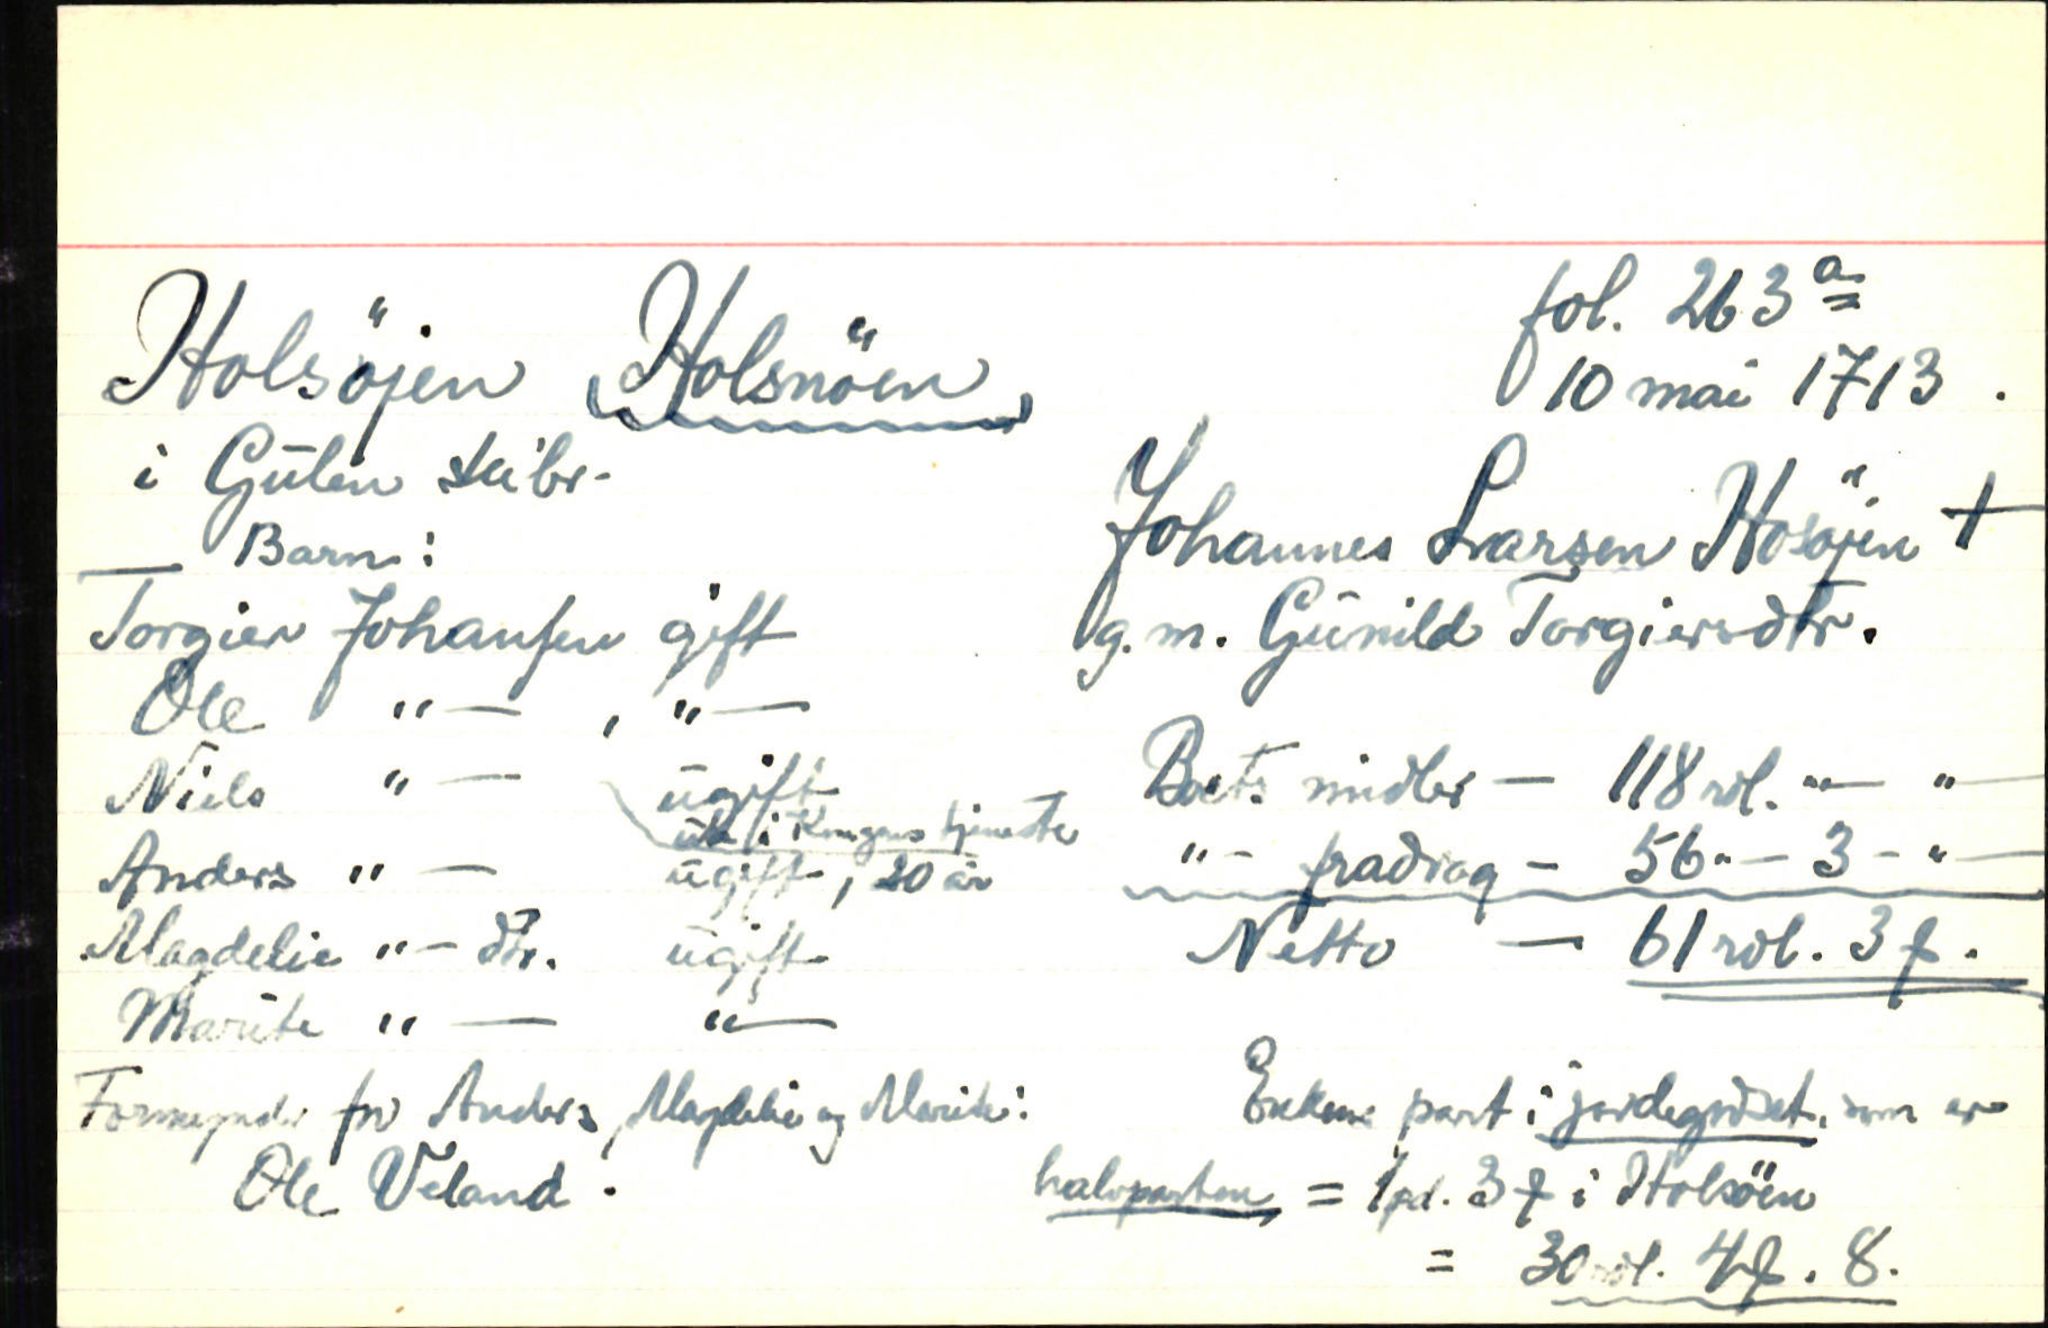 fol. 263 a
Holsöjen (Holsnöen)
10 mai 1713.
i Gulen skibr.
Johannes Larsen Hosöjen †
g. m. Gunild Torgiersdtr.
Barn:
Torgier Johansen gift
Ole " — , " —
Niels " — ugift
ute i Kongens tjeneste
Anders " — ugift, 20 år
Magdelie " — dtr. ugift
Marite " — " —
Formynder for Anders, Magdelie og Marite:
Ole Veland.
Boets midler — 118 rdl. " — " —
" — fradrag — 56 " — 3 — " —
Netto — 61 rdl. 3 ꝑ.
Enkens part i jordegodset, som er
halvparten = 1 pd. 3 ꝑ i Holsöen
= 30 rdl. 4 ꝑ. 8.